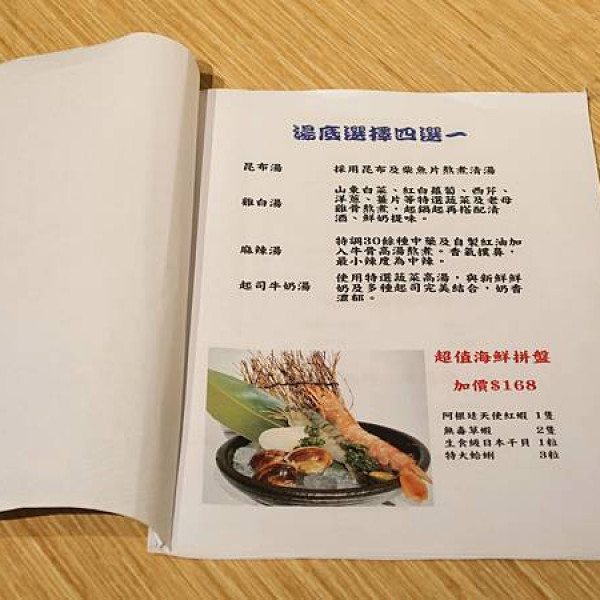 湯底選擇四選一
昆布湯 採用昆布及柴魚片熬煮清湯
雞白湯 山東白菜、紅白蘿蔔、西芹、
洋蔥、薑片等特選蔬菜及老母
雞骨熬煮，起鍋起再搭配清
酒、鮮奶提味。
麻辣湯 特調30餘種中藥及自製紅油加
入牛骨高湯熬煮。香氣撲鼻，
最小辣度為中辣。
起司牛奶湯 使用特選蔬菜高湯，與新鮮鮮
奶及多種起司完美結合，奶香
濃郁。
超值海鮮拼盤
加價$168
阿根廷天使紅蝦 1隻
無毒草蝦 2隻
生食級日本干貝 1粒
特大蛤蜊 3粒